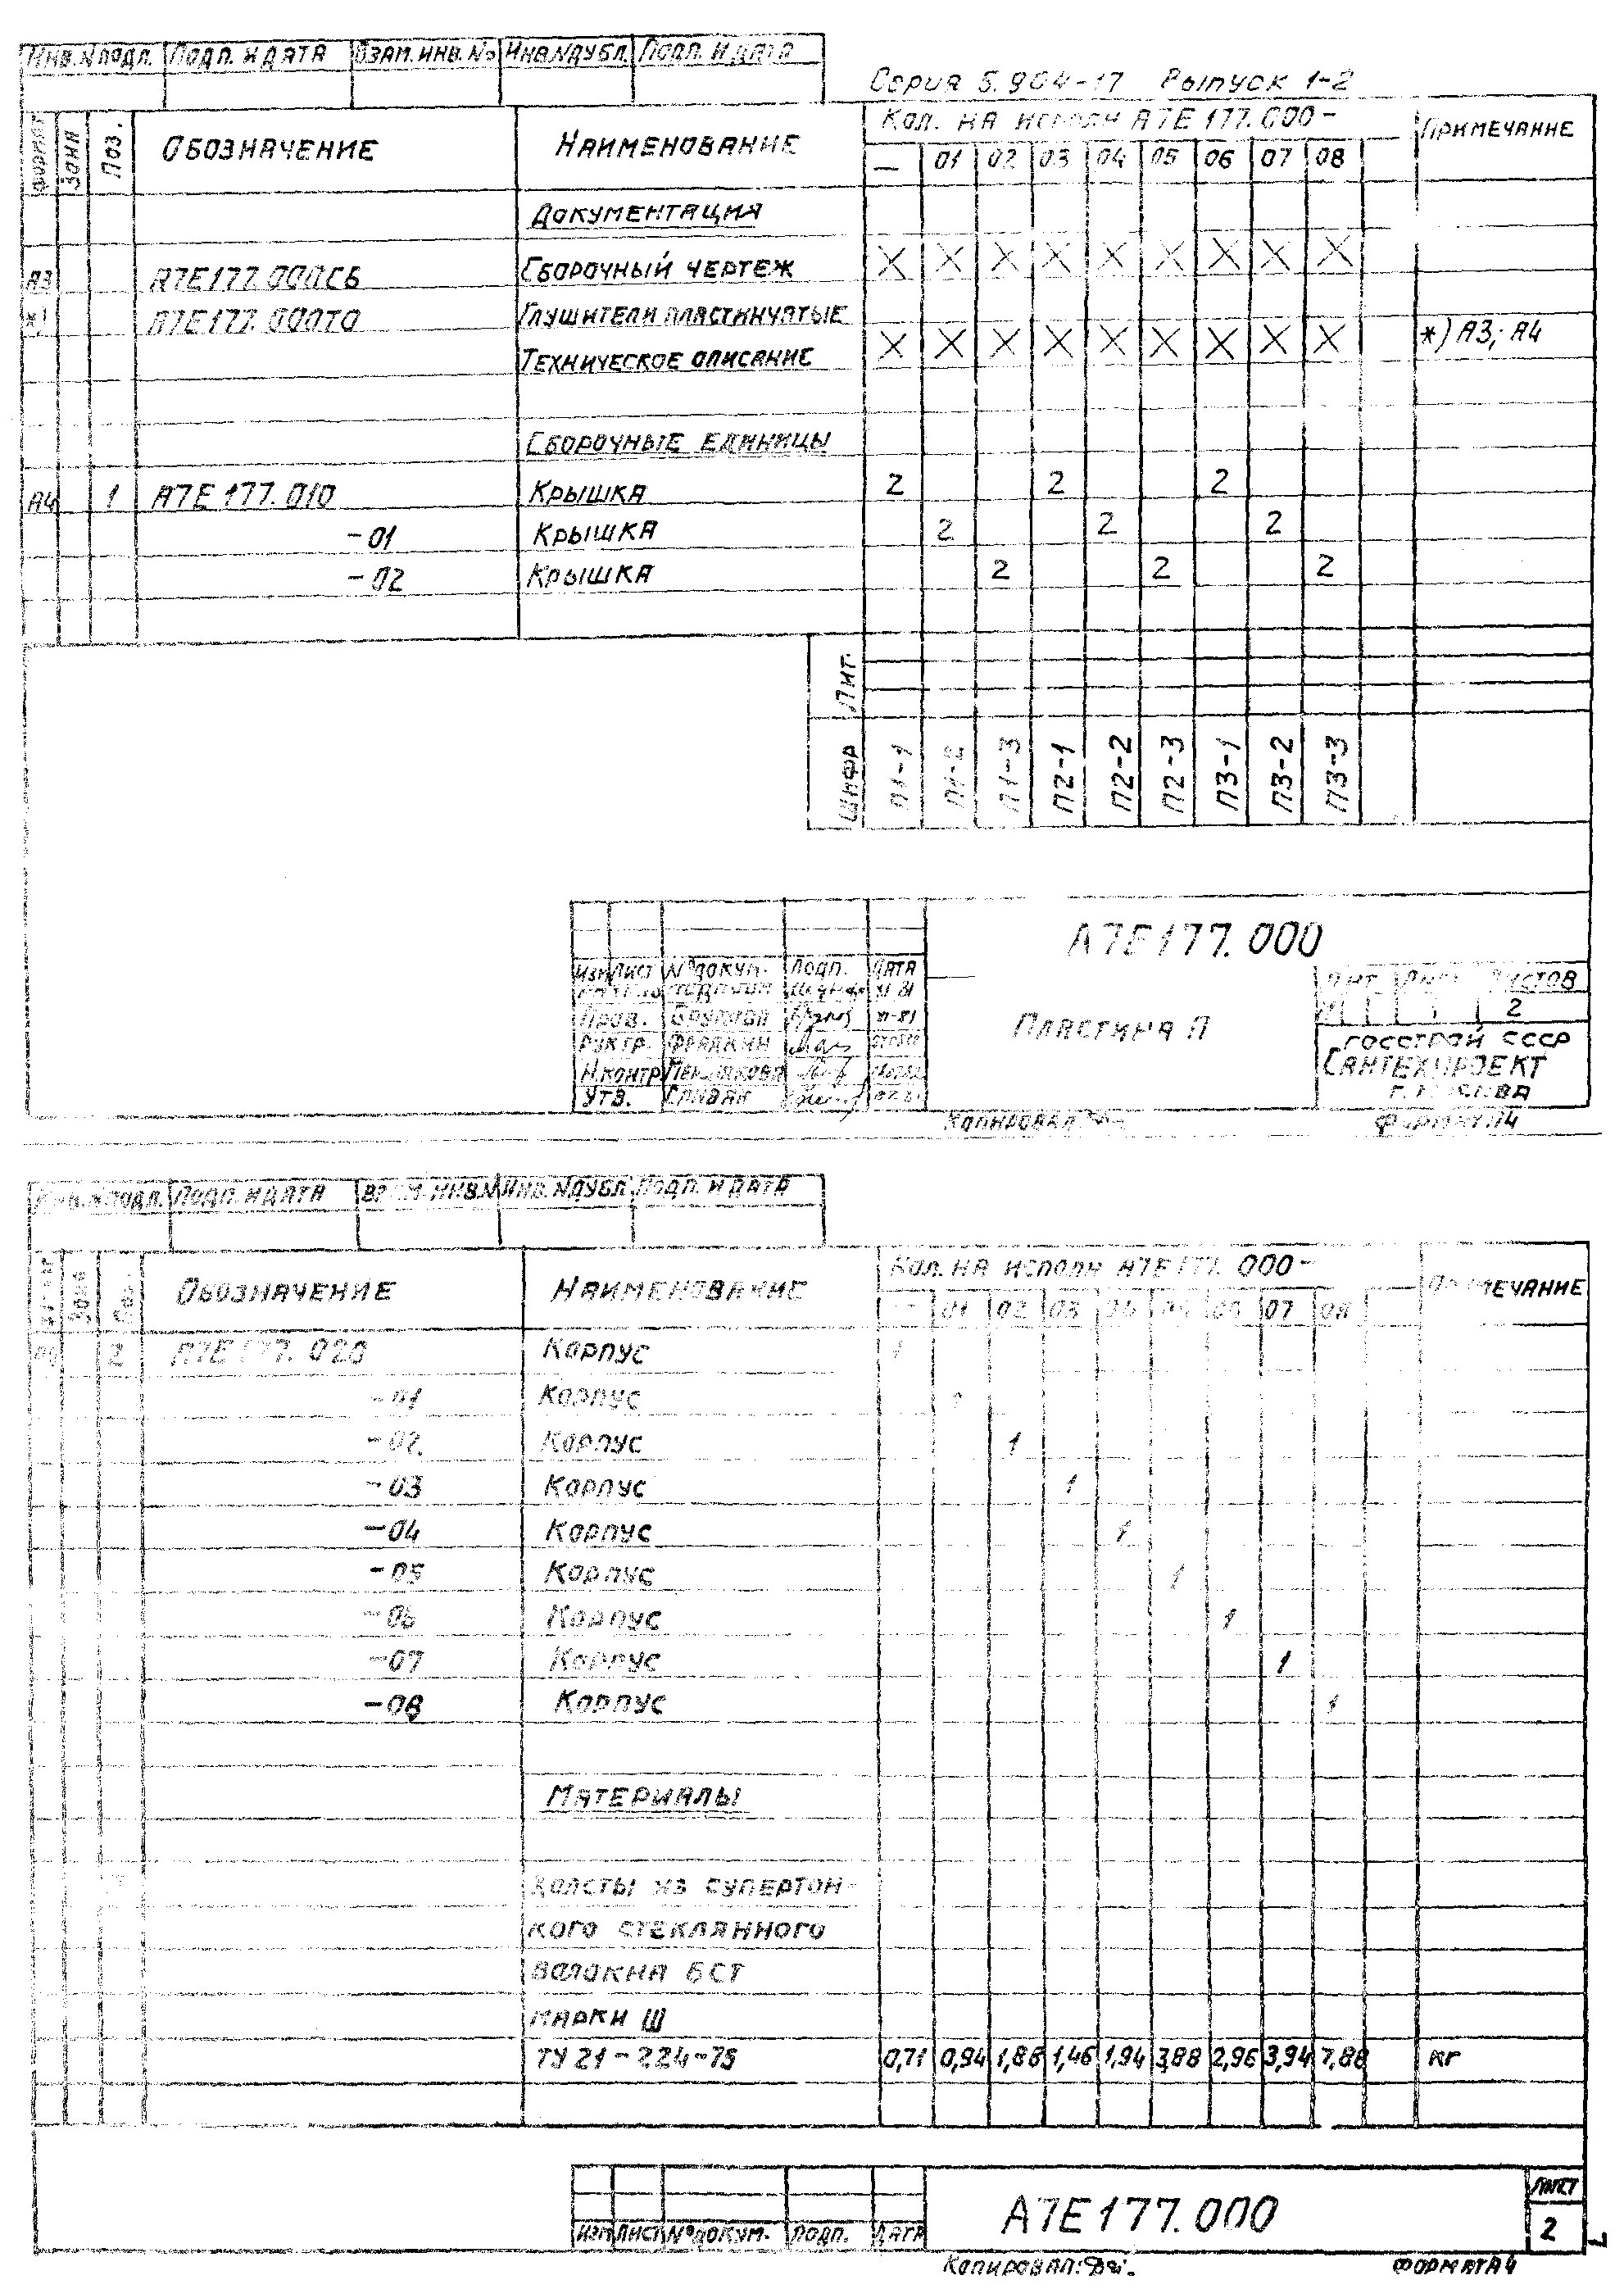 Инв.№подл. Подп. и дата Взам.инв.№ Инв.№дубл. Подп. и дата
Серия 5.904-17 Выпуск 1-2
Формат Зона Поз. Обозначение Наименование Кол. на исполн А7Е177.000- Примечание
— 01 02 03 04 05 06 07 08
Документация
А3 А7Е177.000СБ Сборочный чертеж X X X X X X X X X
*) А7Е177.000ТО Глушители пластинчатые
Техническое описание X X X X X X X X X *) А3; А4
Сборочные единицы
А4 1 А7Е177.010 Крышка 2 2 2
-01 Крышка 2 2 2
-02 Крышка 2 2 2
Лит.
Шифр П1-1 П1-2 П1-3 П2-1 П2-2 П2-3 П3-1 П3-2 П3-3
А7Е177.000
Изм Лист №докум. Подп. Дата
Пров.
Рук.гр. Фрадкин
Н.контр
Утв. Спивак
Пластина П
Лит Лист Листов
2
Госстрой СССР
Сантехпроект
г. Москва
Копировал Формат А4
Инв.№подл. Подп. и дата Взам.инв.№ Инв.№дубл. Подп. и дата
Формат Зона Поз. Обозначение Наименование Кол. на исполн А7Е177.000- Примечание
— 01 02 03 04 05 06 07 08
2 А7Е177.020 Корпус 1
-01 Корпус
-02 Корпус 1
-03 Корпус 1
-04 Корпус 1
-05 Корпус 1
-06 Корпус 1
-07 Корпус 1
-08 Корпус 1
Материалы
Холсты из супертон-
кого стеклянного
волокна БСТ
марки Ш
ТУ 21-224-75 0,71 0,94 1,86 1,46 1,94 3,88 2,96 3,94 7,88 кг
Изм Лист №докум. Подп. Дата
А7Е177.000
Лист
2
Копировал: Формат А4